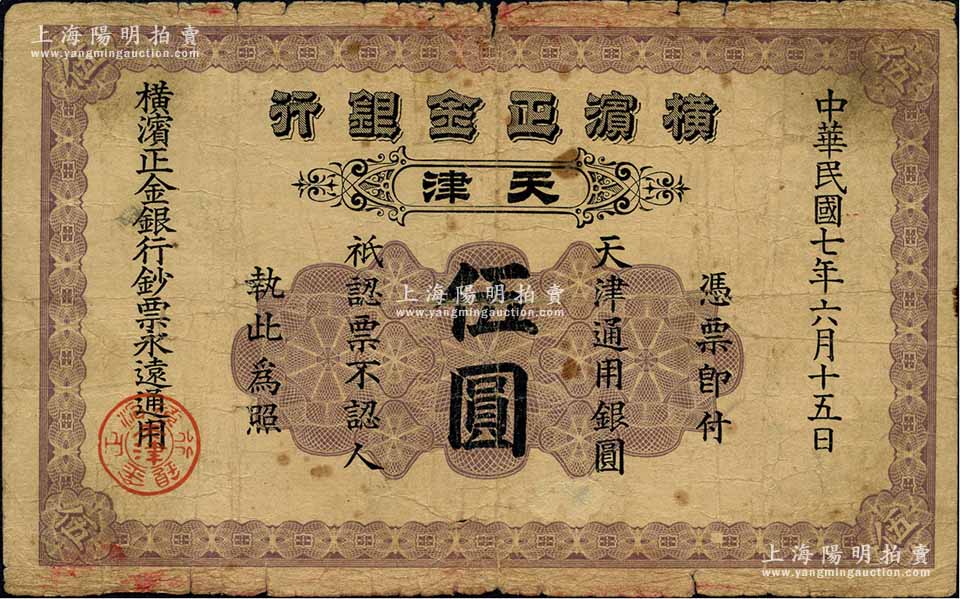 上海陽明拍賣
www.yangmingauction.com
伍
伍
橫濱正金銀行
天津
中華民國七年六月十五日
憑票即付
天津通用銀圓
伍圓
祇認票不認人
執此爲照
橫濱正金銀行鈔票永遠通用
津
上海陽明拍賣
www.yangmingauction.com
伍
伍
上海陽明拍賣
www.yangmingauction.com